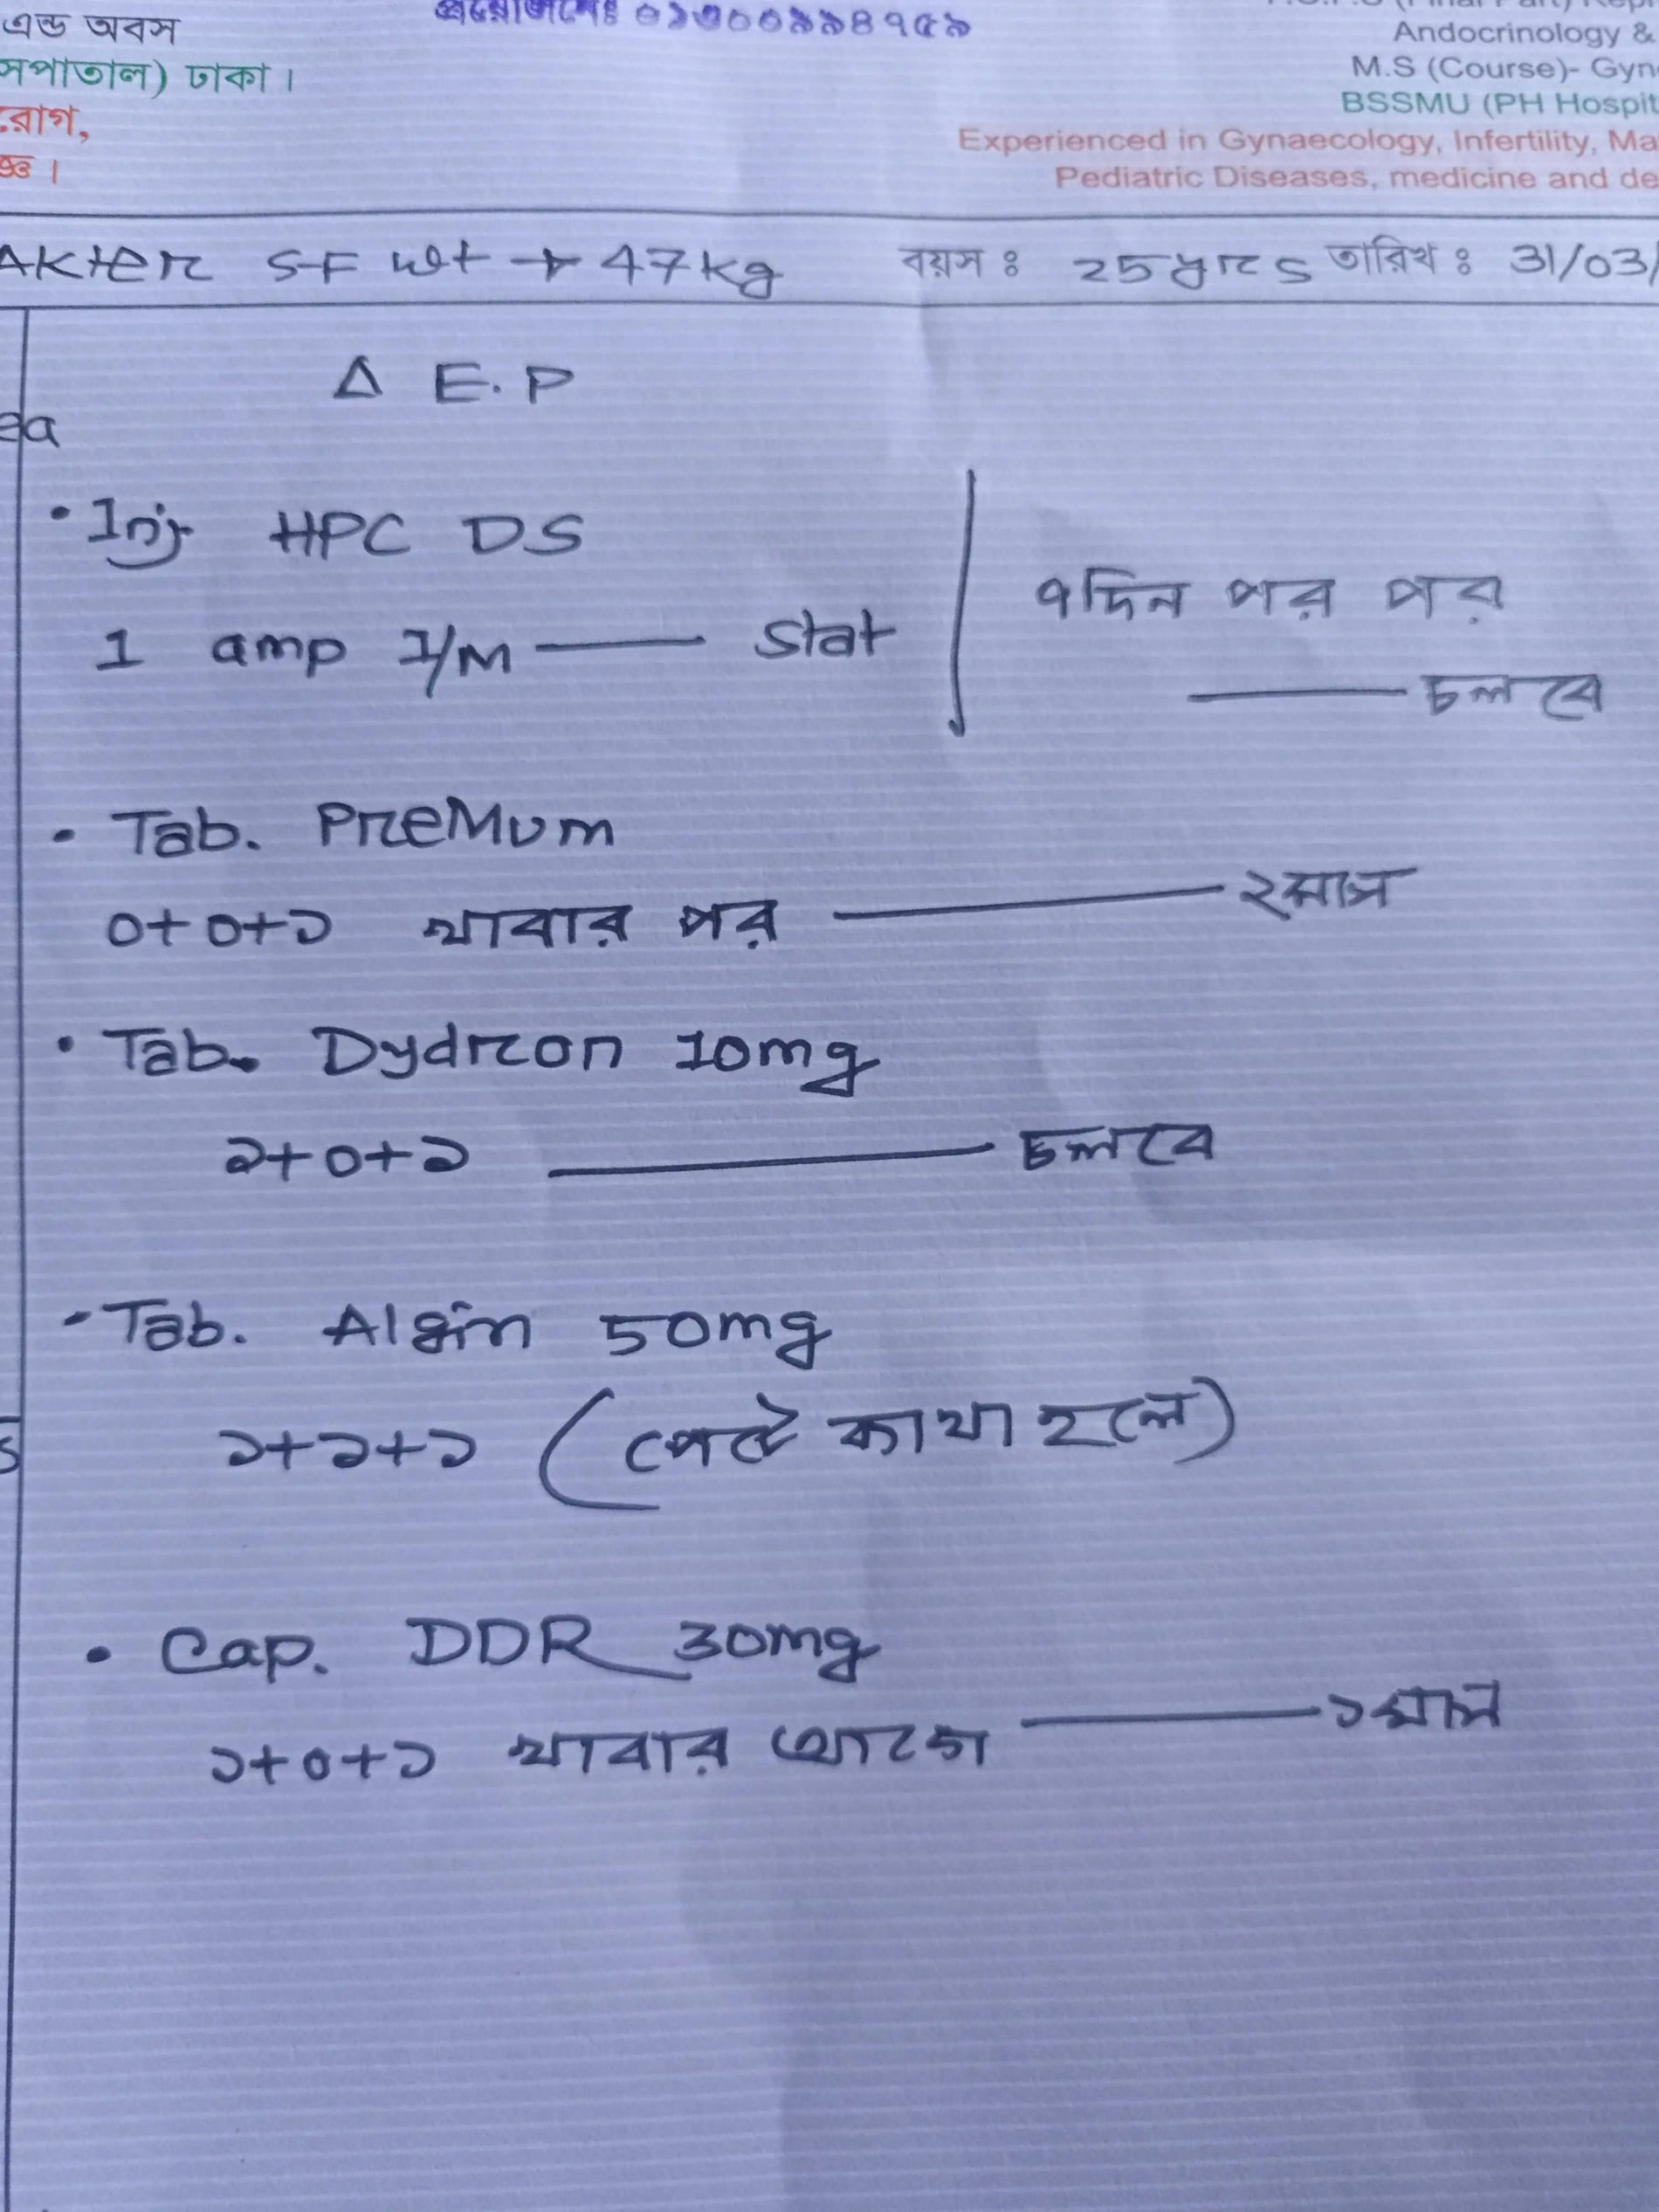 এন্ড অবস
সপাতাল) ঢাকা।
রোগ,
Andocrinology &
M.S (Course)- Gyn
BSSMU (PH Hospit
Experienced in Gynaecology, Infertility, Ma
Pediatric Diseases, medicine and de
Akter SF wt → 47kg বয়স ঃ 25 yrs তারিখ ঃ 31/03/
Δ E.P
ea
• Inj HPC DS
1 amp I/M — Stat
৭দিন পর পর
— চলবে
• Tab. PreMum
০+০+১ খাবার পর — ২মাস
• Tab. Dydron 10mg
১+০+১ — চলবে
• Tab. Algin 50mg
১+১+১ (পেটে ব্যাথা হলে)
• Cap. DDR 30mg
১+০+১ খাবার আগে — ১মাস